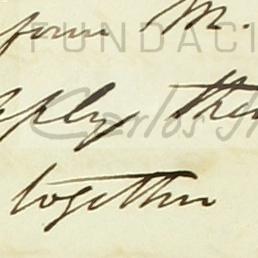 form M.
FUNDACI
the
Carlos
together